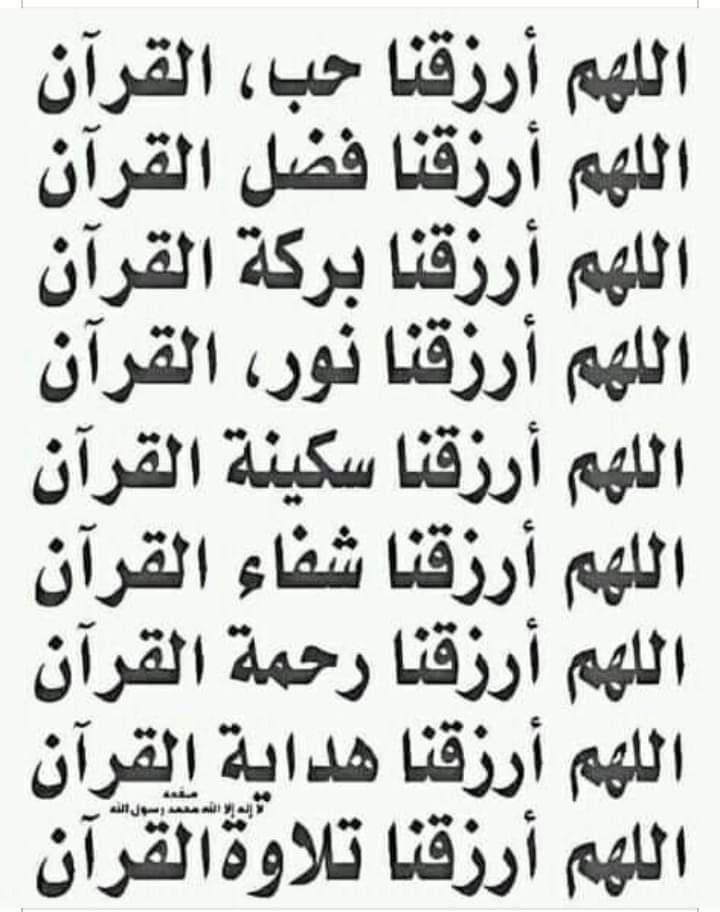 اللهم أرزقنا حب، القرآن
اللهم أرزقنا فضل القرآن
اللهم أرزقنا بركة القرآن
اللهم أرزقنا نور، القرآن
اللهم أرزقنا سكينة القرآن
اللهم أرزقنا شفاء القرآن
اللهم أرزقنا رحمة القرآن
اللهم أرزقنا هداية القرآن
صفحه
لا إله إلا الله محمد رسول الله
اللهم أرزقنا تلاوة القرآن